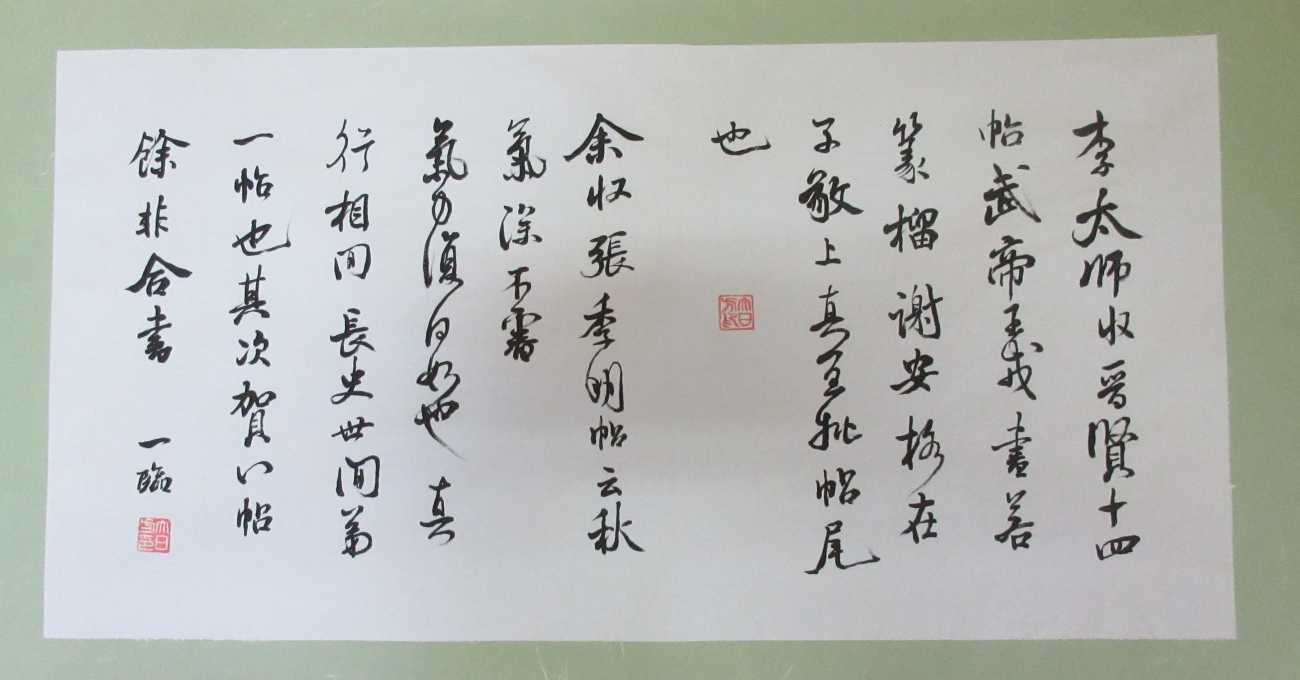 李太师收晋賢十四
帖武帝王戎書若
篆籀謝安格在
子敬上真至批帖尾
也
余收張季明帖云秋
氣深不審
氣力復何如也真
行相間長史世間第
一帖也其次賀八帖
餘非合書 一臨